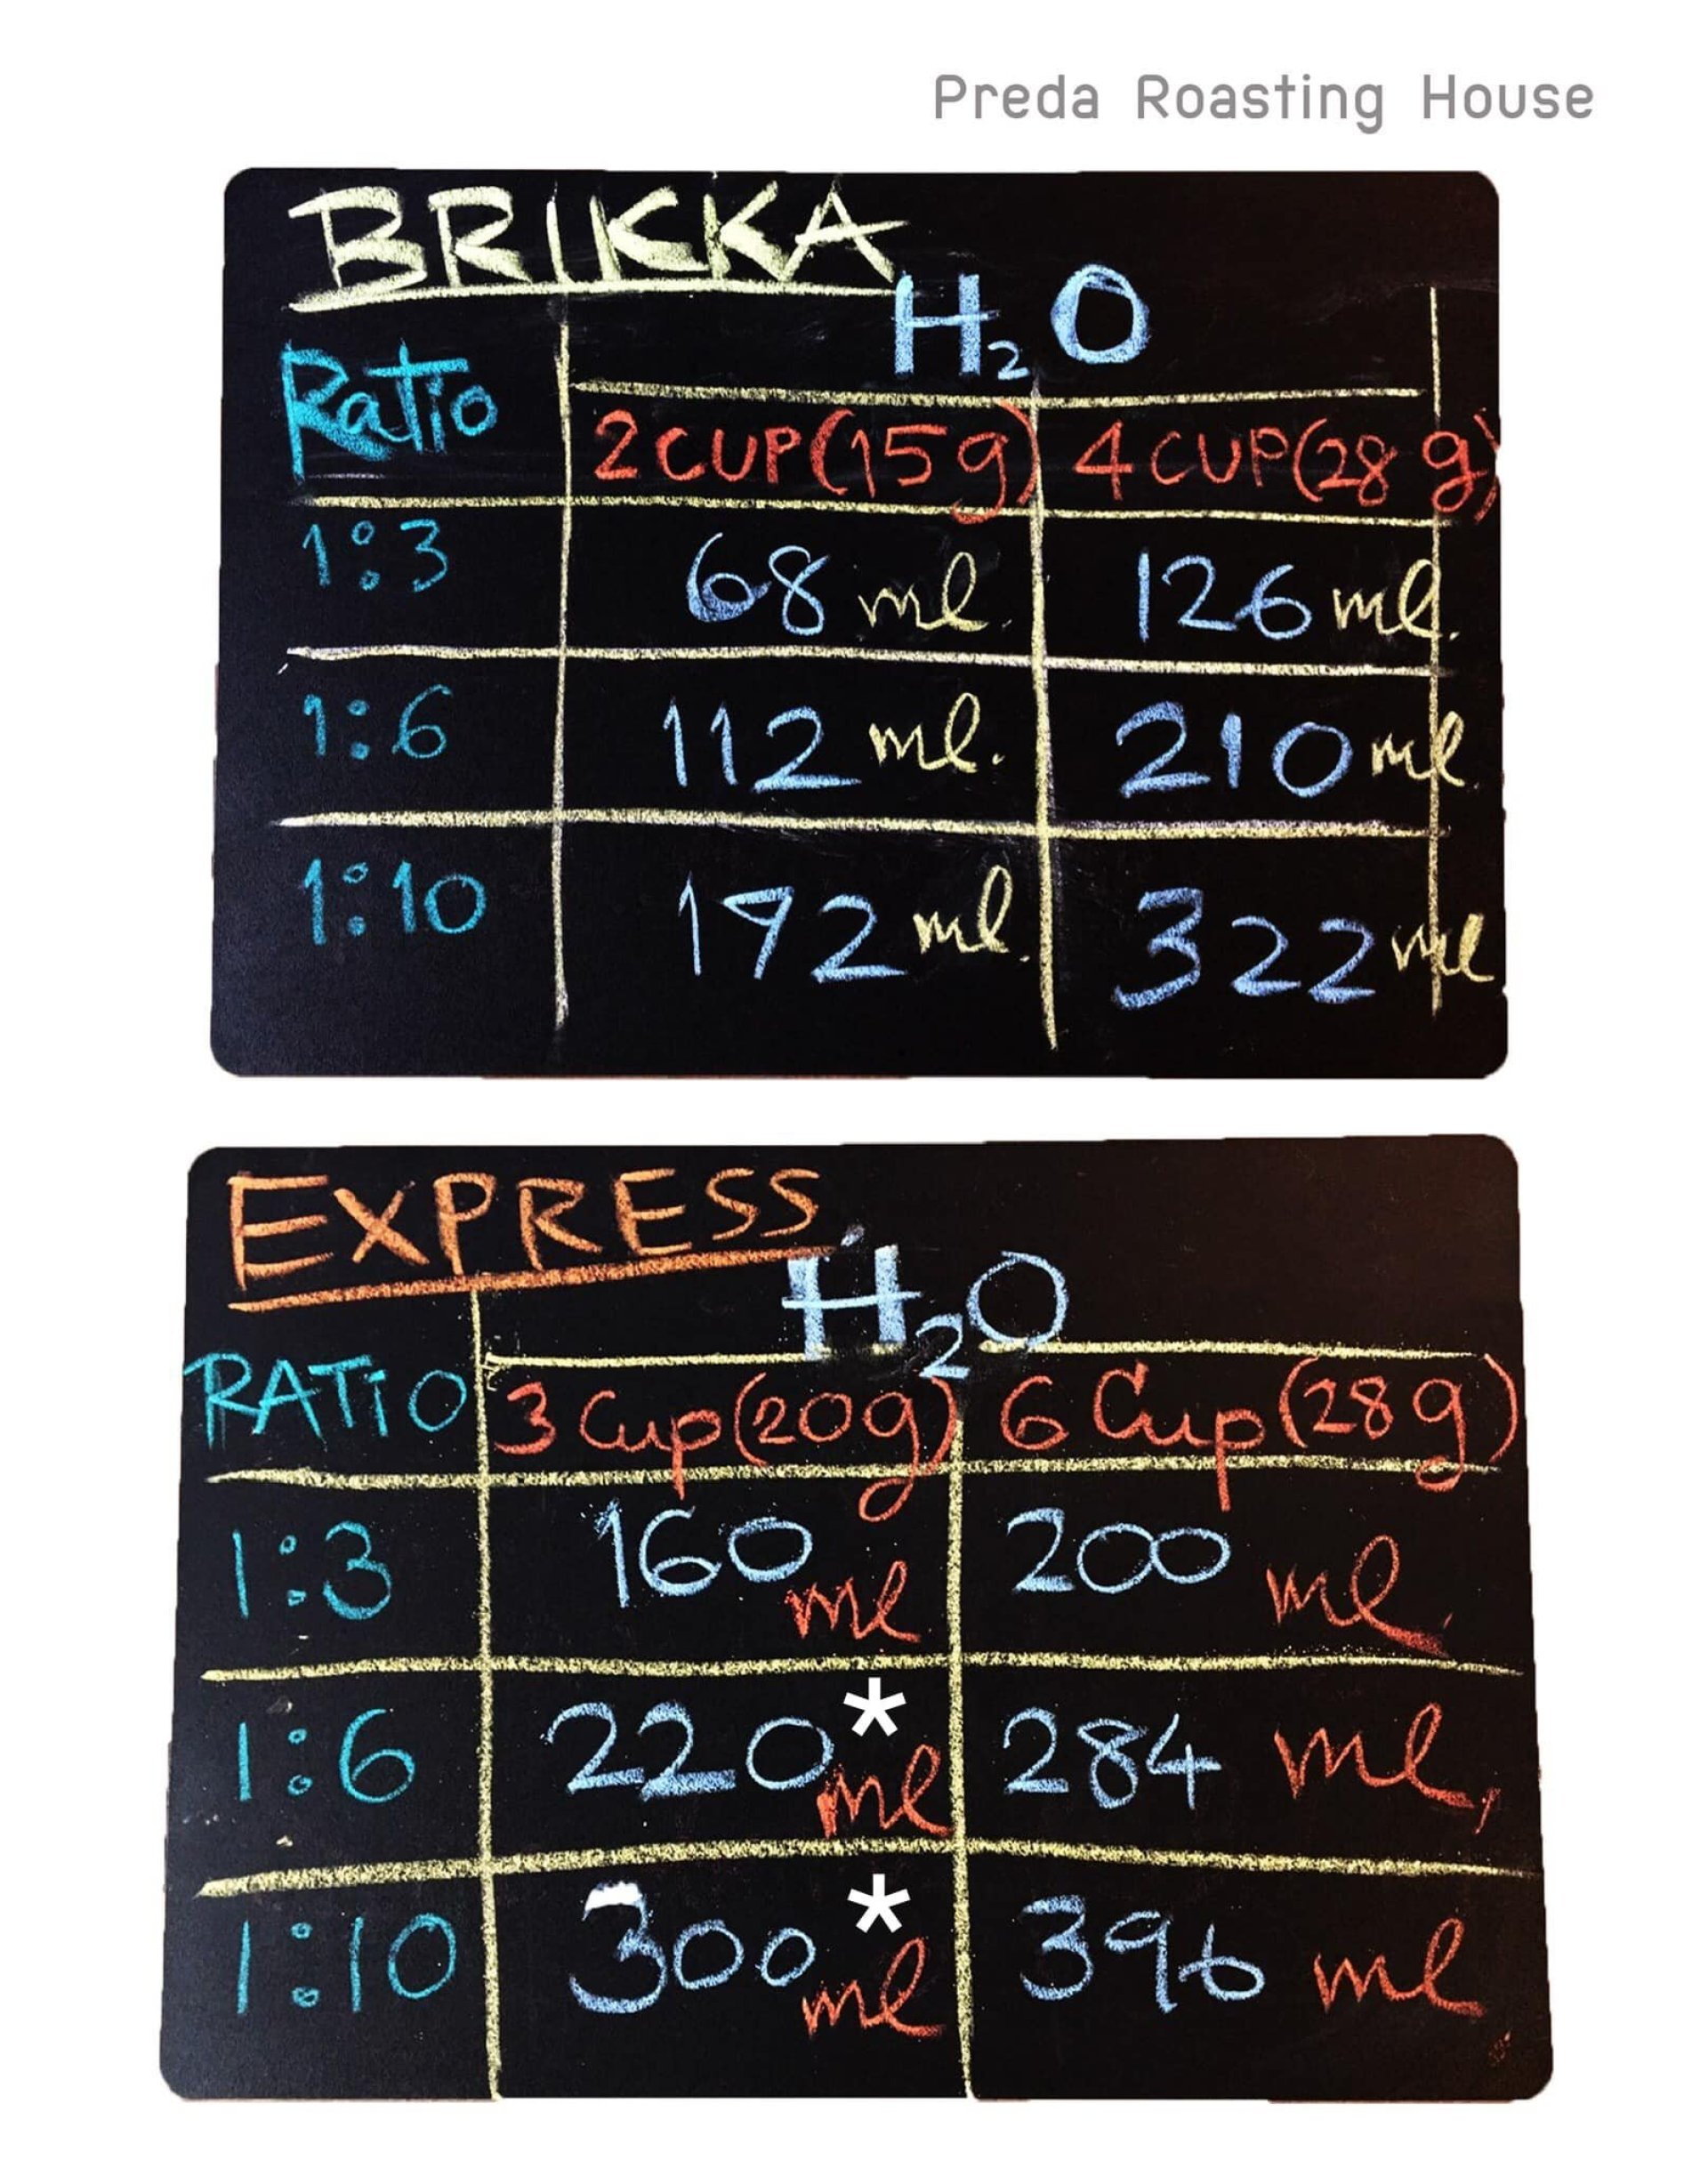 Preda Roasting House
BRIKKA
H₂O
Ratio 2 CUP (15 g) 4 CUP (28 g)
1:3 68 ml. 126 ml.
1:6 112 ml. 210 ml
1:10 172 ml. 322 ml
EXPRESS
H₂O
RATiO 3 Cup (20g) 6 Cup (28g)
1:3 160 ml 200 ml.
1:6 220* ml 284 ml,
1:10 300* ml 396 ml